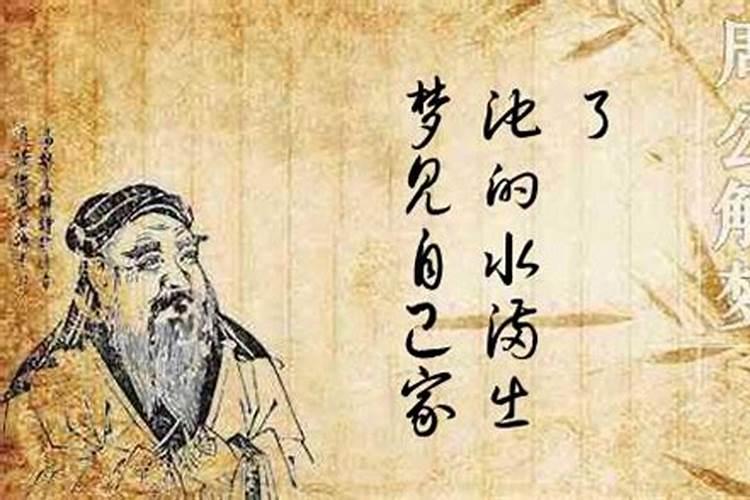 梦见自己家
池的水满出
了
周公解梦